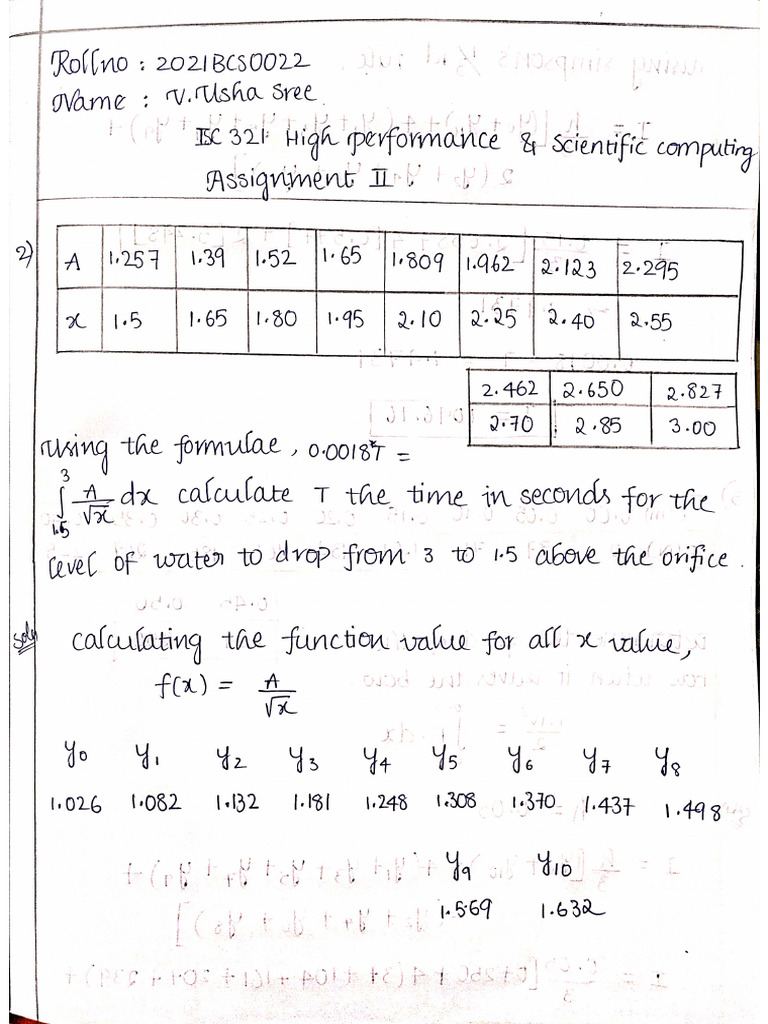 Rollno : 2021BCS0022
Name : V. Usha Sree
ISC 321: High performance & Scientific computing
Assignment II
2) A 1.257 1.39 1.52 1.65 1.809 1.962 2.123 2.295
x 1.5 1.65 1.80 1.95 2.10 2.25 2.40 2.55
2.462 2.650 2.827
2.70 2.85 3.00
Using the formulae, 0.0018T =
∫₁.₅³ A/√x dx calculate T the time in seconds for the
level of water to drop from 3 to 1.5 above the orifice.
Soln calculating the function value for all x value,
f(x) = A/√x
y₀ y₁ y₂ y₃ y₄ y₅ y₆ y₇ y₈
1.026 1.082 1.132 1.181 1.248 1.308 1.370 1.437 1.498
y₉ y₁₀
1.569 1.632